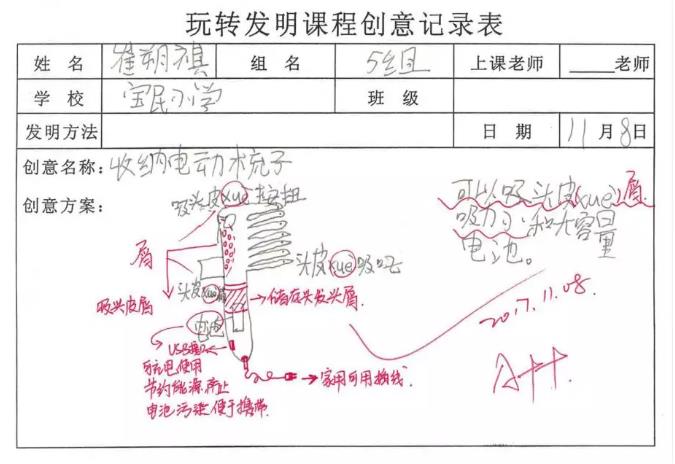 玩转发明课程创意记录表
姓 名 崔朔祺 组 名 5组 上课老师 ____老师
学 校 宝民小学 班 级
发明方法 日 期 11月8日
创意名称：收纳电动木梳子
创意方案：
吸头皮xue按扭
可以吸头皮(xue)屑
吸力小和大容量
电池。
屑
头皮xue吸口
吸头皮屑
头皮xue
储存头发头屑.
电池
USB接口
可充电使用
节约能源.停止
电池污染.便于携带.
家用可用插线.
2017.11.08.
A++